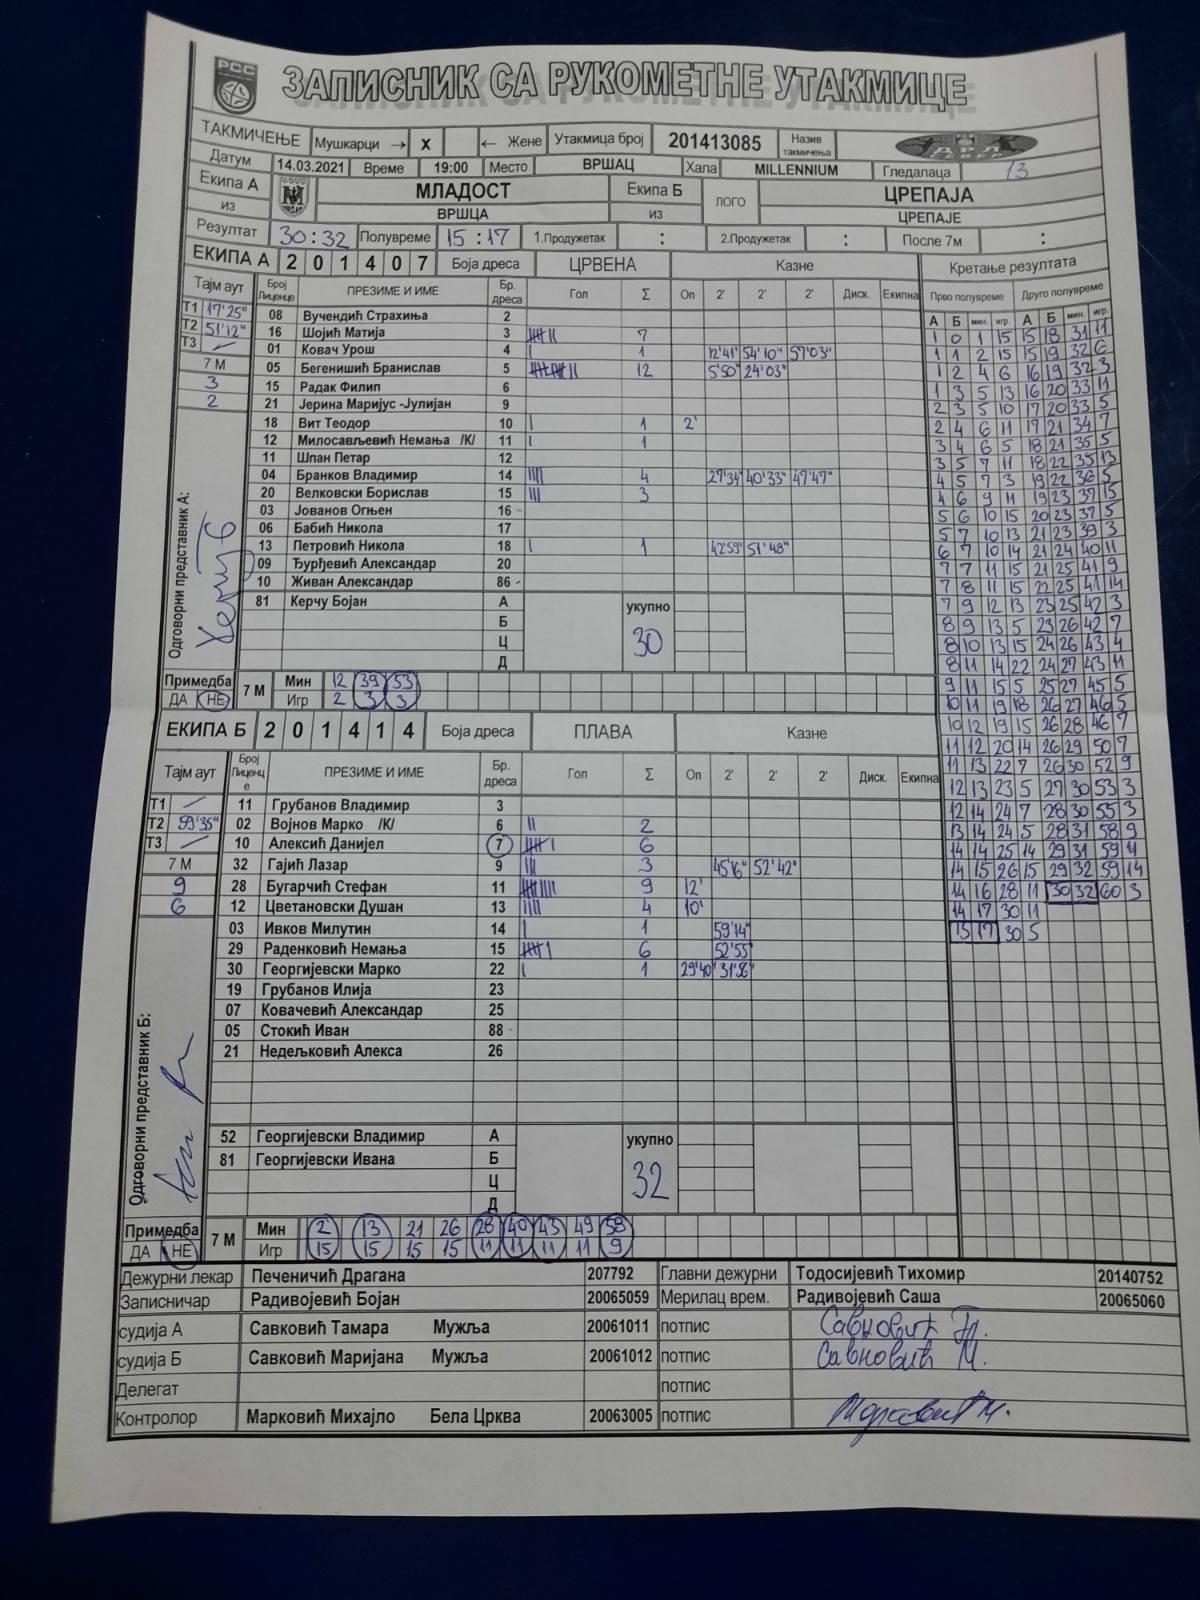 РСС
ЗАПИСНИК СА РУКОМЕТНЕ УТАКМИЦЕ
ТАКМИЧЕЊЕ Мушкарци → X ← Жене Утакмица број 201413085 Назив такмичења
Датум 14.03.2021 Време 19:00 Место ВРШАЦ Хала MILLENNIUM Гледалаца 13
Екипа А МЛАДОСТ Екипа Б ЛОГО ЦРЕПАЈА
из ВРШЦА из ЦРЕПАЈЕ
Резултат 30:32 Полувреме 15:17 1.Продужетак : 2.Продужетак : После 7м :
ЕКИПА А 2 0 1 4 0 7 Боја дреса ЦРВЕНА Казне Кретање резултата
Тајм аут Број Лиценце ПРЕЗИМЕ И ИМЕ Бр. дреса Гол Σ Оп 2' 2' 2' Диск. Екипна Прво полувреме Друго полувреме
А Б мин. игр. А Б мин. игр.
T1 17'25"
T2 51'12"
T3
7 М
3
2
08 Вучендић Страхиња 2
16 Шојић Матија 3 7
01 Ковач Урош 4 1 12'41" 54'10" 57'03"
05 Бегенишић Бранислав 5 12 5'50" 24'03"
15 Радак Филип 6
21 Јерина Маријус -Јулијан 9
18 Вит Теодор 10 1 2'
12 Милосављевић Немања /К/ 11 1
11 Шпан Петар 12
04 Бранков Владимир 14 4 27'34" 40'33" 47'47"
20 Велковски Борислав 15 3
03 Јованов Огњен 16
06 Бабић Никола 17
13 Петровић Никола 18 1 42'59" 51'48"
09 Ђурђевић Александар 20
10 Живан Александар 86
81 Керчу Бојан А укупно
Б 30
Ц
Д
Одговорни представник А:
Примедба 7 М Мин 12 39 53
ДА НЕ Игр 2 3 3
1 0 1 15 15 18 31 11
1 1 2 15 15 19 32 6
1 2 4 6 16 19 32 3
1 3 5 13 16 20 33 11
2 3 5 10 17 20 33 5
2 4 6 11 17 21 34 7
3 4 6 5 18 21 35 5
3 5 7 11 18 22 35 13
4 5 7 3 19 22 36 5
4 6 9 11 19 23 37 15
5 6 10 15 20 23 37 5
5 7 10 13 21 23 39 3
6 7 10 14 21 24 40 11
7 7 11 15 21 25 41 9
7 8 11 15 22 25 41 14
7 9 12 13 23 25 42 3
8 9 13 5 23 26 42 7
8 10 13 15 24 26 43 4
8 11 14 22 24 27 43 11
9 11 15 5 25 27 45 5
10 11 19 18 26 27 46 5
10 12 19 15 26 28 46 7
11 12 20 14 26 29 50 7
11 13 22 7 26 30 52 9
12 13 23 5 27 30 53 3
12 14 24 7 28 30 55 3
13 14 24 5 28 31 58 9
14 14 25 14 29 31 59 11
14 15 26 15 29 32 59 14
14 16 28 11 30 32 60 3
14 17 30 11
15 17 30 5
ЕКИПА Б 2 0 1 4 1 4 Боја дреса ПЛАВА Казне
Тајм аут Број Лиценце ПРЕЗИМЕ И ИМЕ Бр. дреса Гол Σ Оп 2' 2' 2' Диск. Екипна
T1
T2 59'35"
T3
7 М
9
6
11 Грубанов Владимир 3
02 Војнов Марко /К/ 6 2
10 Алексић Данијел 7 6
32 Гајић Лазар 9 3 45'16" 52'42"
28 Бугарчић Стефан 11 9 12'
12 Цветановски Душан 13 4 10'
03 Ивков Милутин 14 1 59'14"
29 Раденковић Немања 15 6 52'55"
30 Георгијевски Марко 22 1 29'40" 31'56"
19 Грубанов Илија 23
07 Ковачевић Александар 25
05 Стокић Иван 88
21 Недељковић Алекса 26
52 Георгијевски Владимир А укупно
81 Георгијевски Ивана Б 32
Ц
Д
Одговорни представник Б:
Примедба 7 М Мин 2 13 21 26 28 40 43 49 58
ДА НЕ Игр 15 15 15 15 11 11 11 11 9
Дежурни лекар Печеничић Драгана 207792 Главни дежурни Тодосијевић Тихомир 20140752
Записничар Радивојевић Бојан 20065059 Мерилац врем. Радивојевић Саша 20065060
судија А Савковић Тамара Мужља 20061011 потпис Савковић Т.
судија Б Савковић Маријана Мужља 20061012 потпис Савковић М.
Делегат потпис
Контролор Марковић Михајло Бела Црква 20063005 потпис Марковић М.